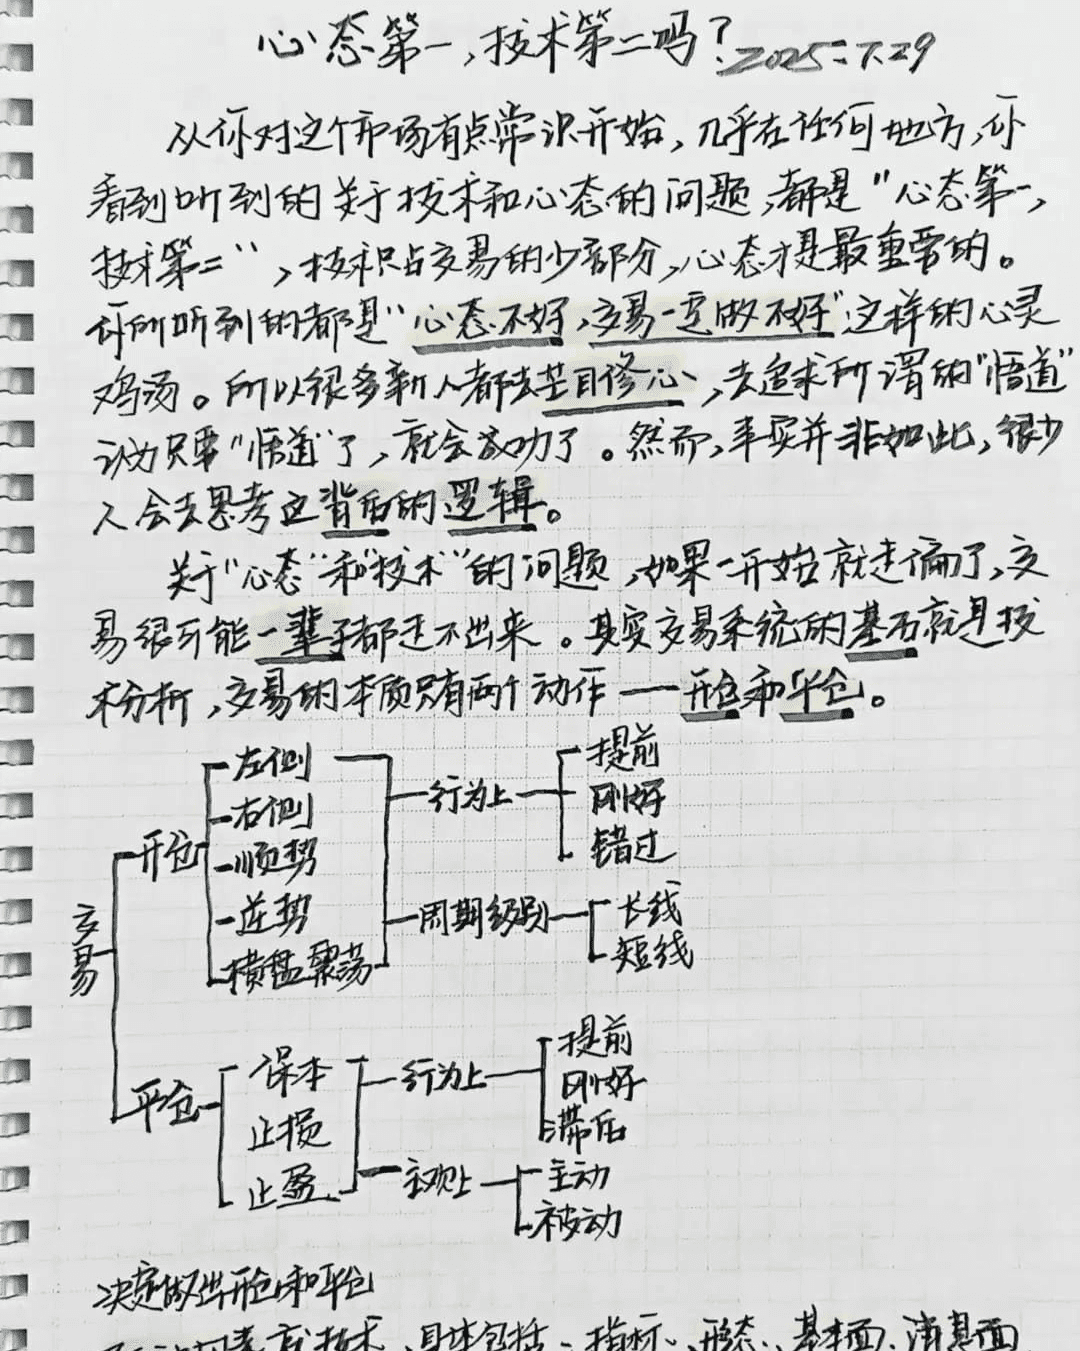 心态第一,技术第二吗? 2025.7.29
从你对这个市场有点常识开始,几乎在任何地方,你
看到听到的关于技术和心态的问题,都是"心态第一,
技术第二",技术只占交易的少部分,心态才是最重要的。
你所听到的都是"心态不好,交易一定做不好"这样的心灵
鸡汤。所以很多新人都去盲目修心,去追求所谓的"悟道"
认为只要"悟道"了,就会成功了。然而,事实并非如此,很少
人会去思考这背后的逻辑。
关于"心态"和"技术"的问题,如果一开始就走偏了,交
易很可能一辈子都走不出来。其实交易系统的基石就是技
术分析,交易的本质只有两个动作——开仓和平仓。
交易
开仓
左侧
右侧
顺势
逆势
横盘震荡
行为上
提前
刚好
错过
周期级别
长线
短线
平仓
保本
止损
止盈
行为上
提前
刚好
滞后
主观上
主动
被动
决定做出开仓和平仓
技术,具体包括、指标、形态、基本面、消息面